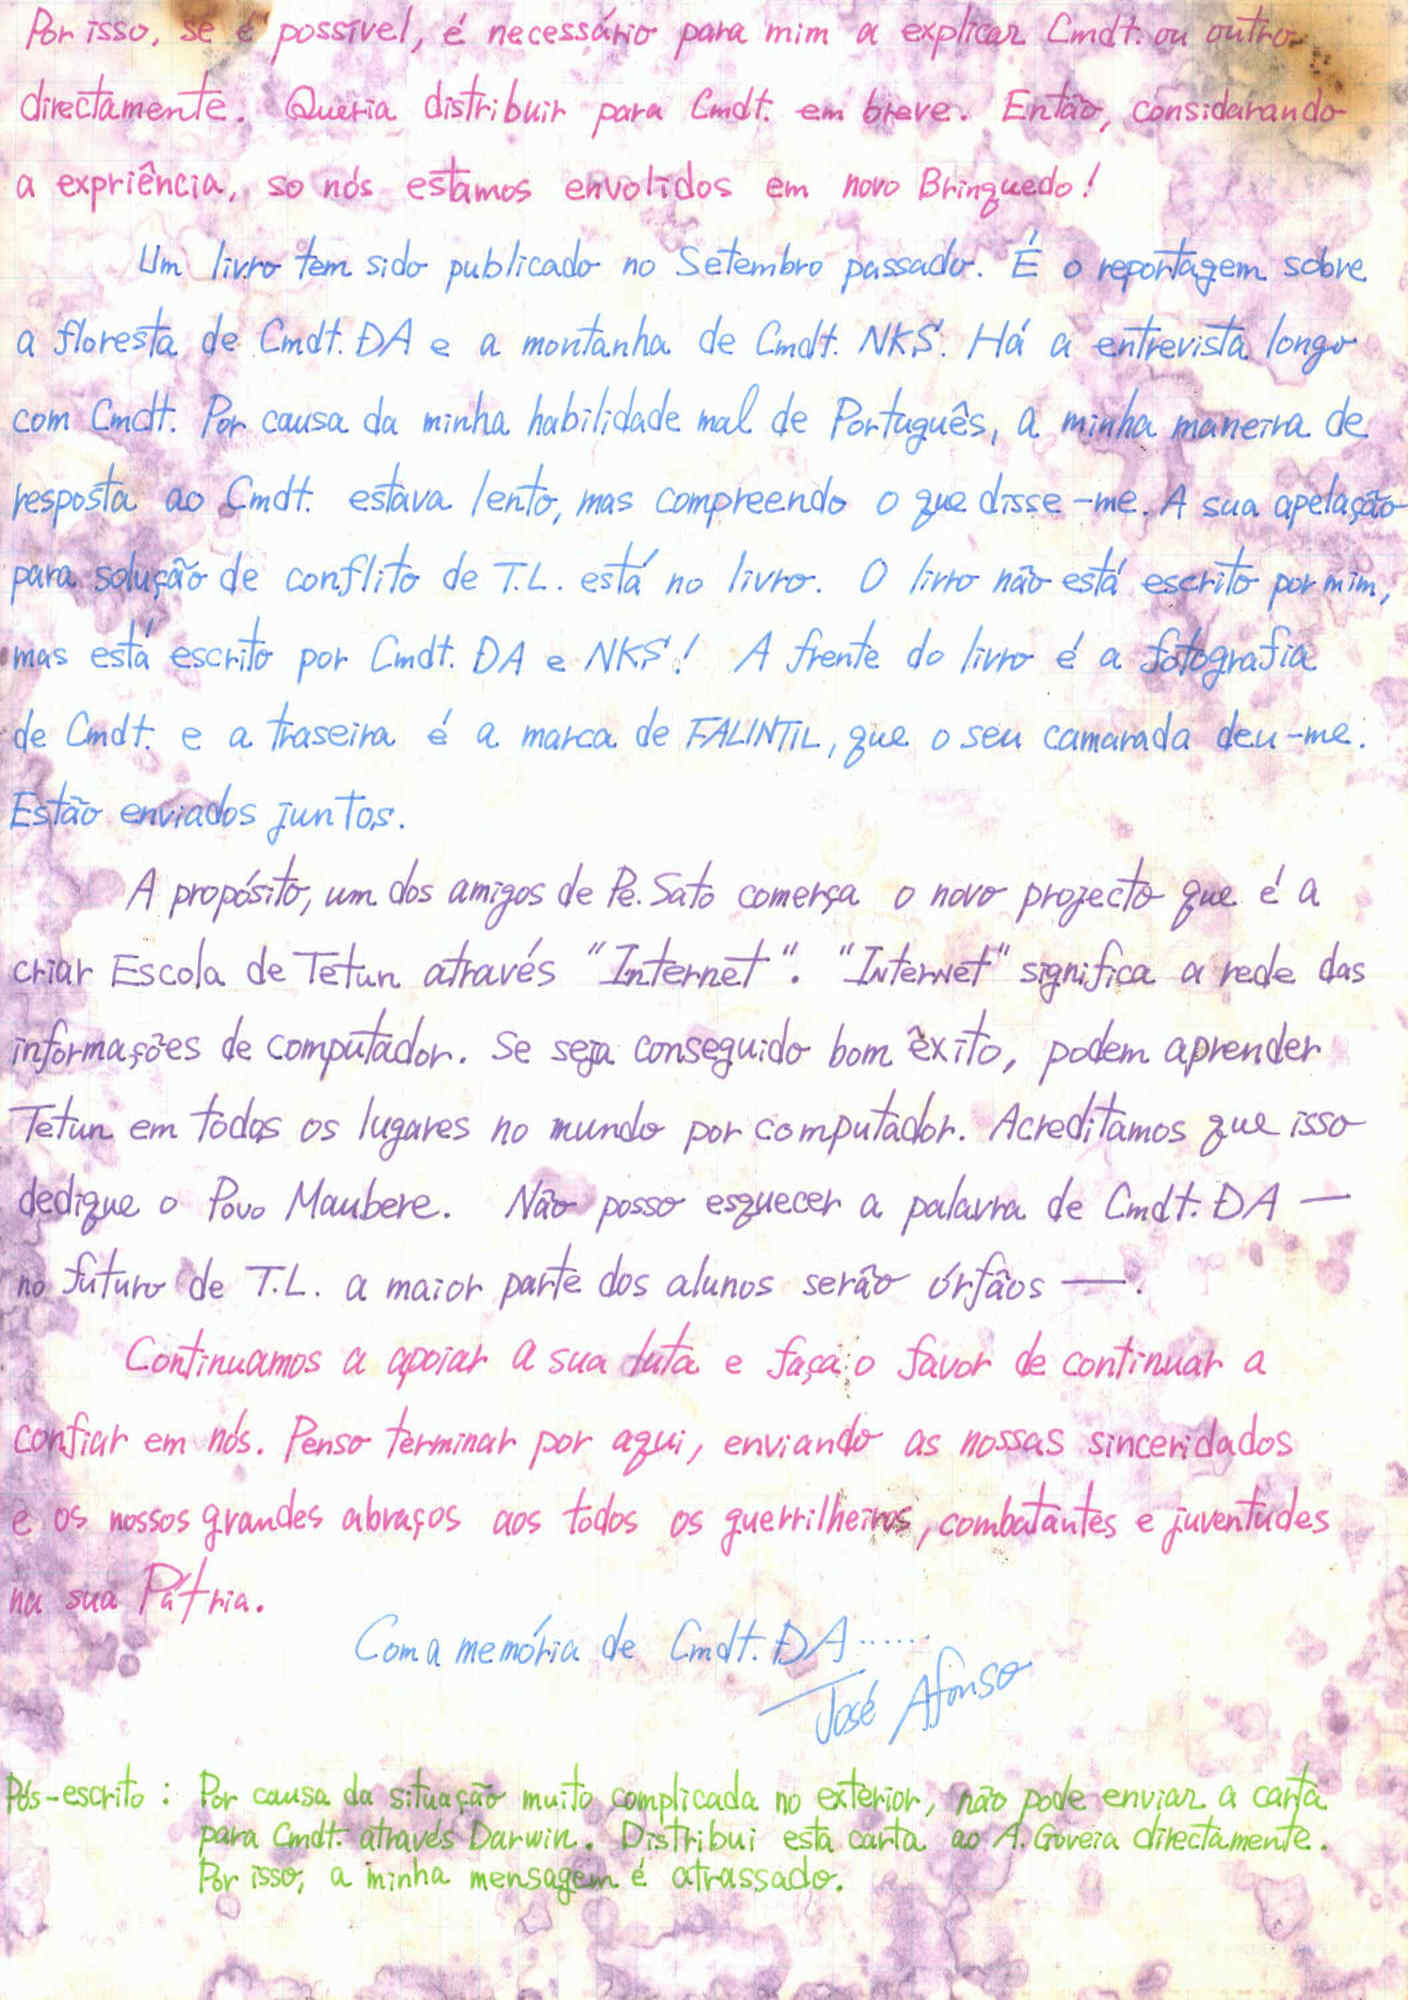 Por isso, se é possível, é necessário para mim a explicar Cmdt. ou outro
directamente. Queria distribuir para Cmdt. em breve. Então, considarando
a expriência, so nós estamos envolidos em novo Brinquedo!
Um livro tem sido publicado no Setembro passado. É o reportagem sobre
a floresta de Cmdt. ĐA e a montanha de Cmdt. NKS. Há a entrevista longo
com Cmdt. Por causa da minha habilidade mal de Português, a minha maneira de
resposta ao Cmdt. estava lento, mas compreendo o que disse-me. A sua apelação
para solução de conflito de T.L. está no livro. O livro não está escrito por mim,
mas está escrito por Cmdt. ĐA e NKS! A frente do livro é a fotografia
de Cmdt. e a traseira é a marca de FALINTIL, que o seu camarada deu-me.
Estão enviados juntos.
A propósito, um dos amigos de Pe. Sato comerça o novo projecto que é a
criar Escola de Tetun através "Internet". "Internet" significa a rede das
informações de computador. Se seja conseguido bom êxito, podem aprender
Tetun em todos os lugares no mundo por computador. Acreditamos que isso
dedique o Povo Maubere. Não posso esquecer a palavra de Cmdt. ĐA —
no futuro de T.L. a maior parte dos alunos serão órfãos —.
Continuamos a apoiar a sua luta e faça o favor de continuar a
confiar em nós. Penso terminar por aqui, enviando as nossas sinceridados
e os nossos grandes abraços aos todos os guerrilheiros, combatantes e juventudes
na sua Pátria.
Com a memória de Cmdt. ĐA ......
José Afonso
Pós-escrito : Por causa da situação muito complicada no exterior, não pode enviar a carta
para Cmdt. através Darwin. Distribui esta carta ao A. Goveia directamente.
Por isso, a minha mensagem é atrassado.